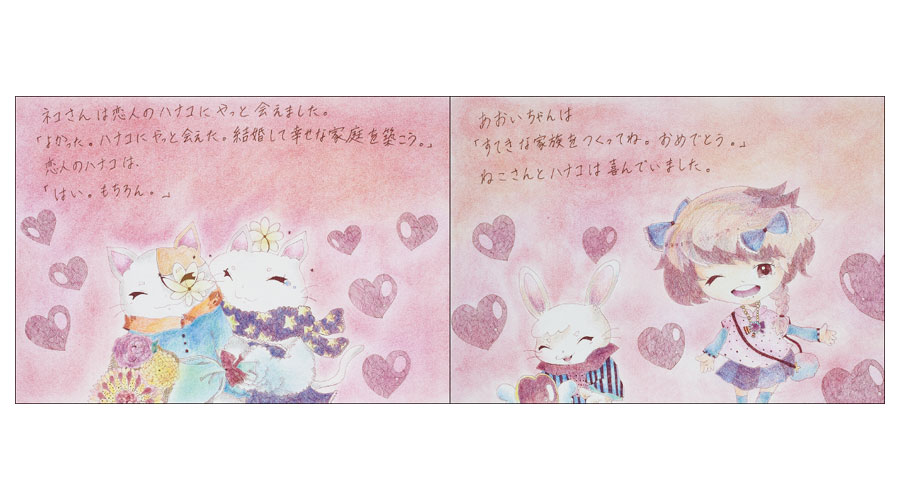 ネコさんは恋人のハナコにやっと会えました。
「よかった。ハナコにやっと会えた。結婚して幸せな家庭を築こう。」
恋人のハナコは、
「はい。もちろん。」
あおいちゃんは
「すてきな家族をつくってね。おめでとう。」
ねこさんとハナコは喜んでいました。